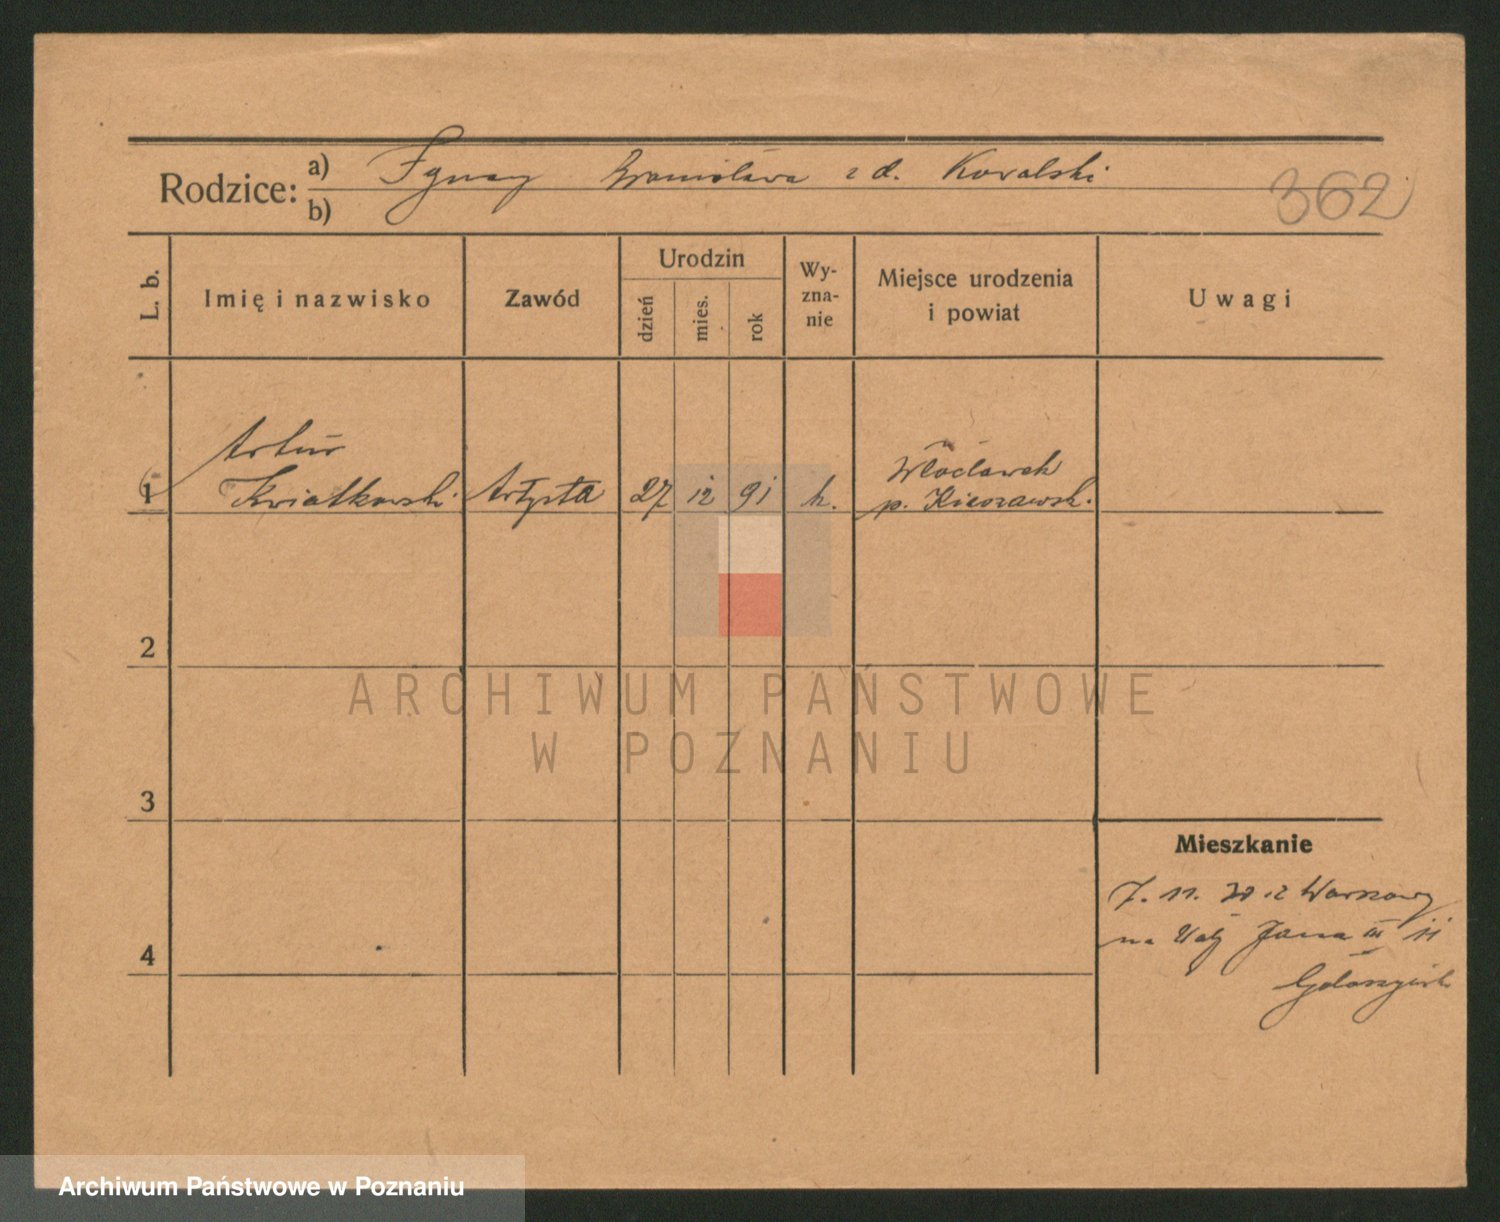 Rodzice:
a) Ignacy Bronisława z d. Kowalski
b)
362
L. b.
Imię i nazwisko
Zawód
Urodzin
dzień
mies.
rok
Wy-
zna-
nie
Miejsce urodzenia
i powiat
Uwagi
1
Artur
Kwiatkowski
Artysta
27
12
91
k.
Włocławek
p. Nieszawsk.
2
3
4
Mieszkanie
7. 11. 30 z Warszawy
na Wały Jana III 11
ARCHIWUM PAŃSTWOWE
W POZNANIU
Archiwum Państwowe w Poznaniu